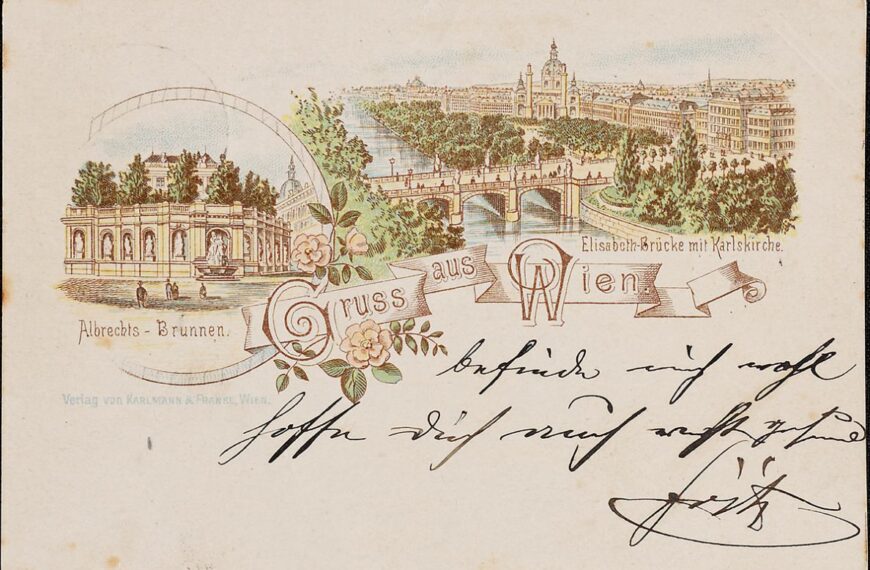 Elisabeth-Brücke mit Karlskirche.
Gruss aus Wien
Albrechts - Brunnen.
Verlag von KARLMANN & FRANKE, WIEN.
befinde mich wohl
hoffe Dich auch recht gesund